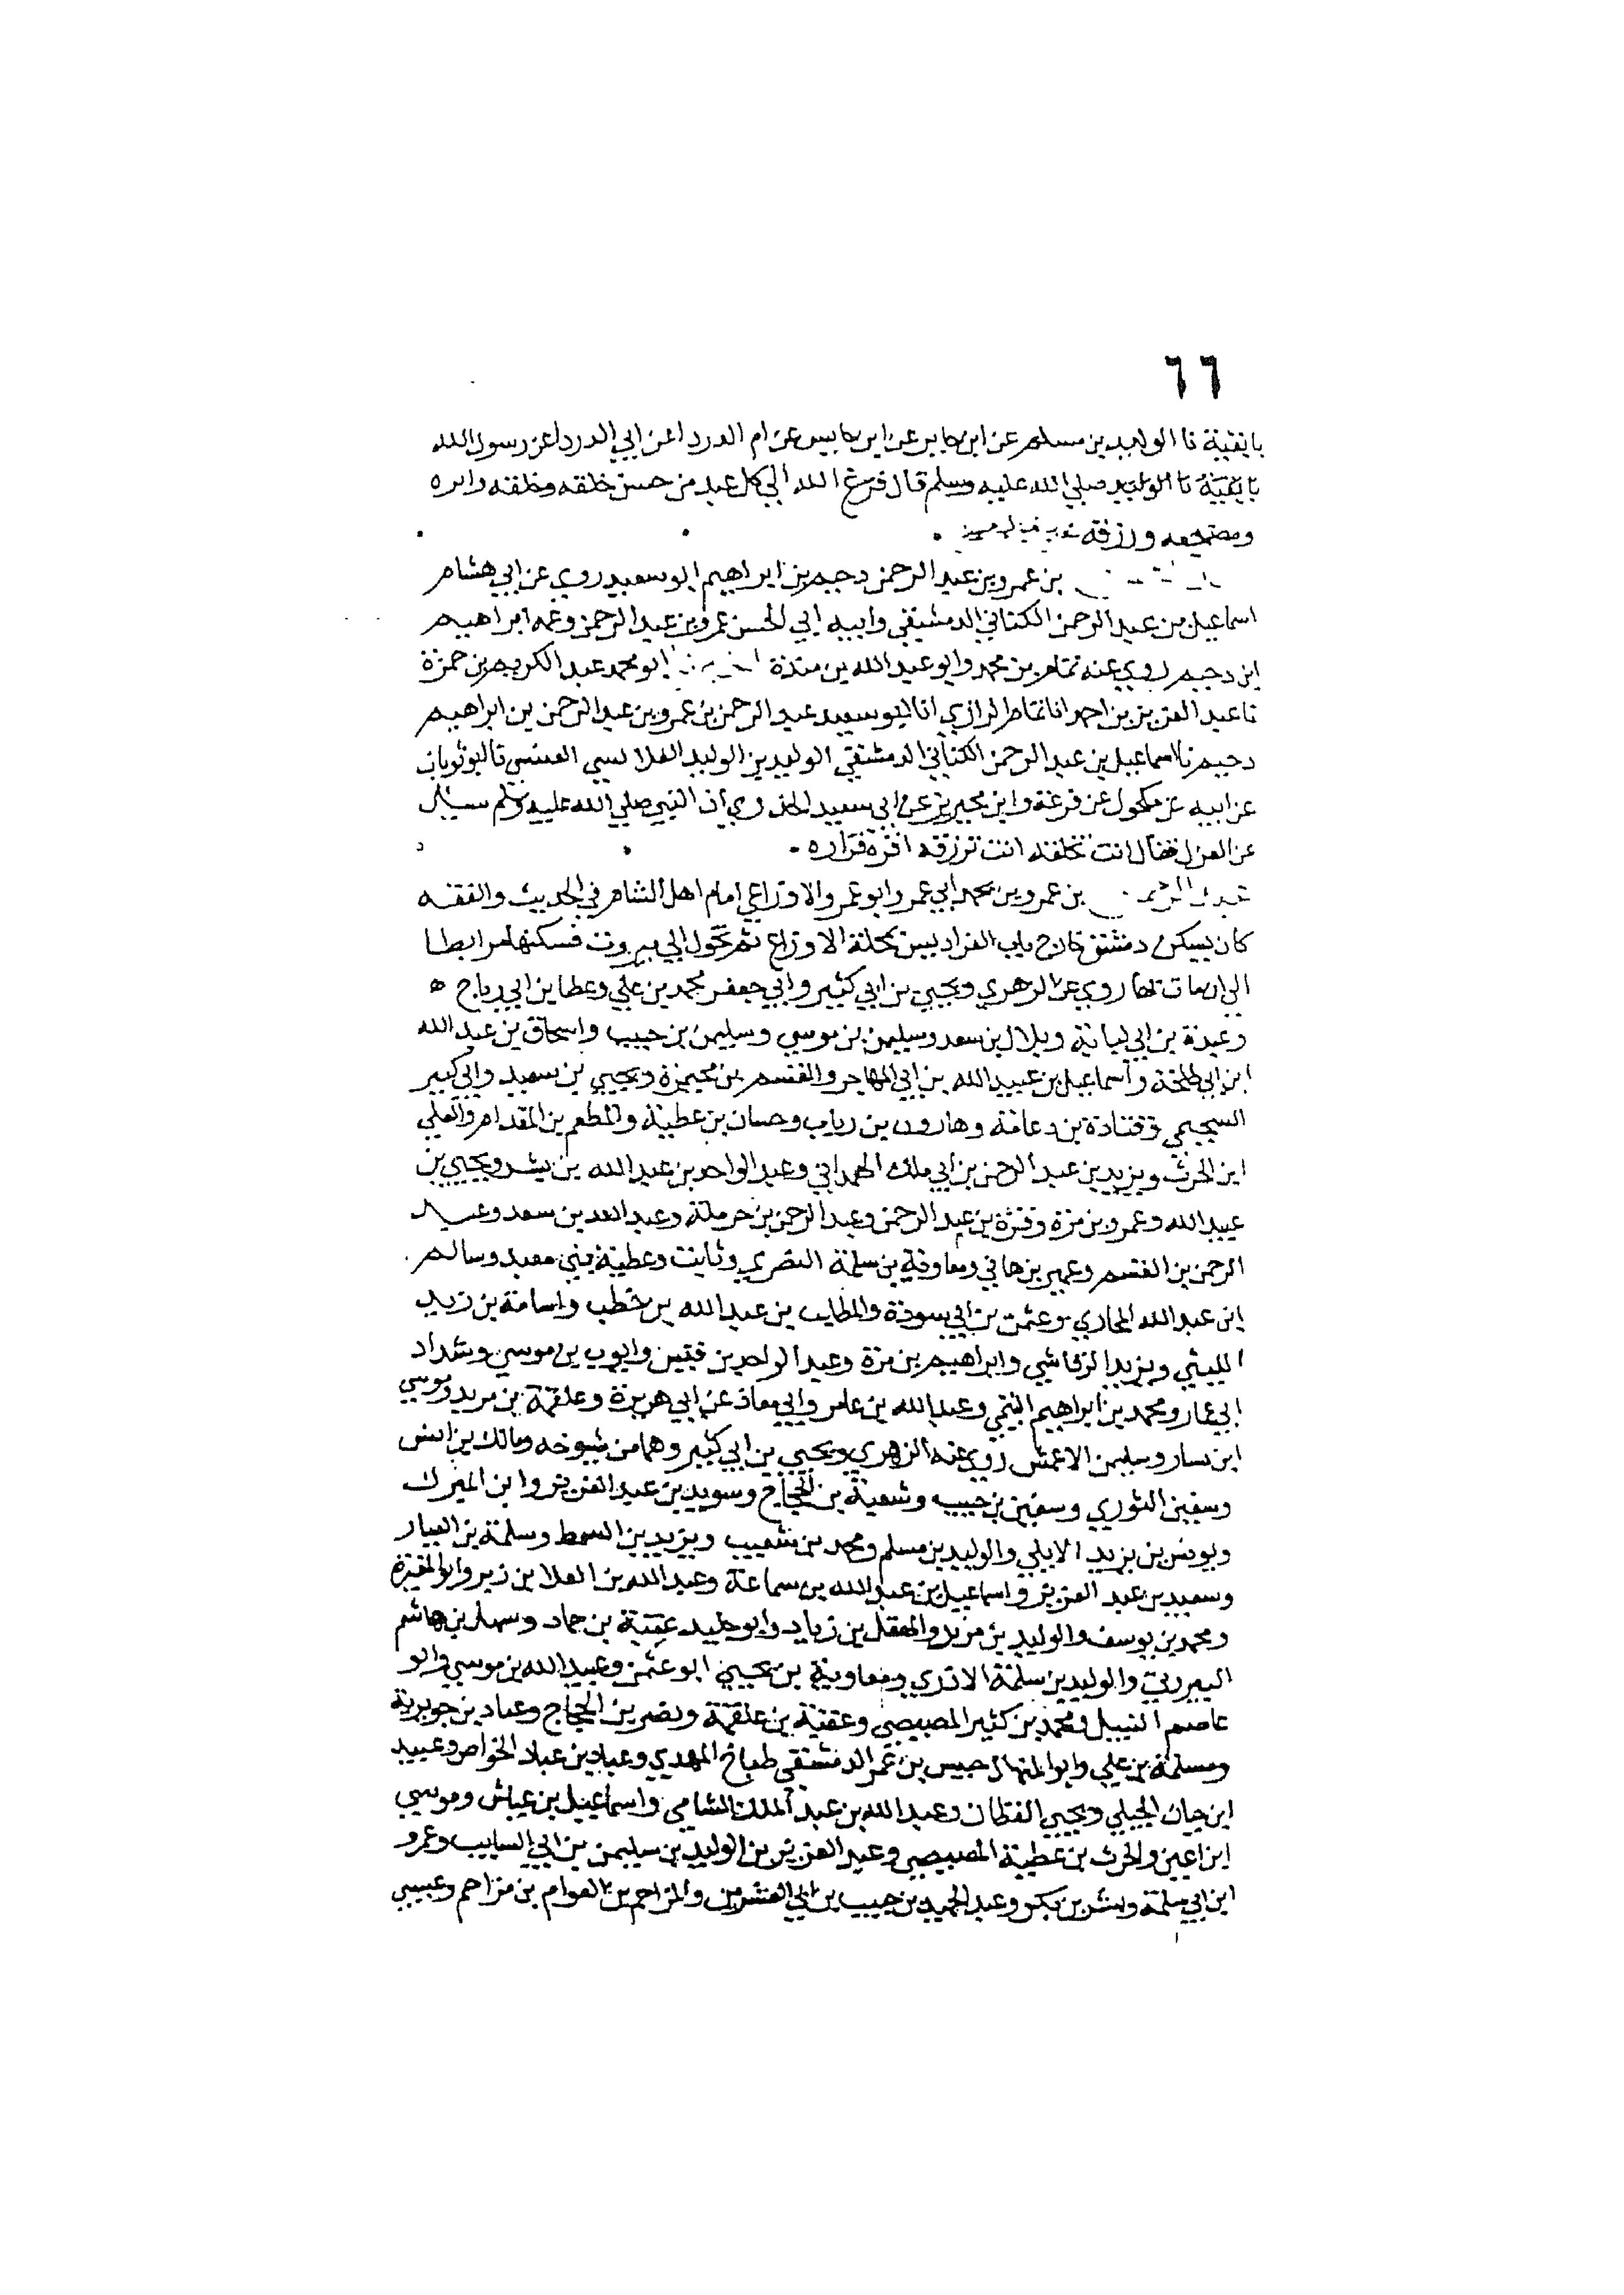 ٦٦
نا بقية نا الوليد بن مسلم عن ابن جابر عن ابن حابس عن ام الدردا عن ابي الدردا عن رسول الله
نا بقية نا الوليد صلي الله عليه وسلم قال فرغ الله الي كل عبد من حسن خلقه وخلقه واثره
ومضجعه ورزقه
بن عمرو بن عبد الرحمن دحيم بن ابراهيم ابو سعيد روي عن ابي هشام
اسماعيل بن عبد الرحمن الكتاني الدمشقي وابيه ابي الحسن عمرو بن عبد الرحمن وعمه ابراهيم
ابن دحيم روي عنه تمام بن محمد وابو عبد الله بن مندة ابو محمد عبد الكريم بن حمزة
نا عبد العزيز بن احمد انا تمام الرازي انا ابو سعيد عبد الرحمن بن عمرو بن عبد الرحمن بن ابراهيم
دحيم نا اسماعيل بن عبد الرحمن الكتاني الدمشقي الوليد بن الوليد القلانسي العنسي نا ابو ثوبان
عن ابيه عن مكحول عن قزعة وابن محيريز عن ابي سعيد الخدري ان النبي صلي الله عليه وسلم سئل
عن العزل فقال انت تخلقه انت ترزقه اقره قراره
عبد الرحمن بن عمرو بن محمد ابي عمرو ابو عمرو الاوزاعي امام اهل الشام في الحديث والفقه
كان يسكن دمشق خارج باب الفراديس بمحلة الاوزاع ثم تحول الي بيروت فسكنها مرابطا
الي ان مات بها روي عن الزهري ويحيي بن ابي كثير وابي جعفر محمد بن علي وعطا بن ابي رباح
وعبدة بن ابي لبابة وبلال بن سعد وسليمن بن موسي وسليمن بن حبيب واسحاق بن عبد الله
ابن ابي طلحة واسماعيل بن عبيد الله بن ابي المهاجر والقسم بن مخيمرة ويحيي بن سعيد وابي كبير
السحيمي وقتادة بن دعامة وهارون بن رياب وحسان بن عطية والمطعم بن المقدام والعلي
ابن الحرث ويزيد بن عبد الرحمن بن ابي ملك الهمداني وعبد الواحد بن عبد الله بن بشر ويحيي بن
عبيد الله وعمرو بن مرة وقرة بن عبد الرحمن وعبد الرحمن بن حرملة وعبد الله بن سعد وعبد
الرحمن بن القسم وعمير بن هاني ومعاوية بن سلمة النصري وثابت وعطية بني معبد وسالم
ابن عبد الله المحاربي وعثمن بن ابي سودة والمطلب بن عبد الله بن حنطب واسامة بن زيد
الليثي ويزيد الرقاشي وابراهيم بن مرة وعبد الواحد بن قيس وايوب بن موسي وشداد
ابي عمار ومحمد بن ابراهيم التيمي وعبد الله بن عامر وابي معاذ عن ابي هريرة وعلقمة بن مرثد وموسي
ابن يسار وسليمن الاعمش روي عنه الزهري ويحيي بن ابي كثير وهما من شيوخه ومالك بن انس
وسفين الثوري وسفين بن حبيب وشعبة بن الحجاج وسويد بن عبد العزيز وابن المبرك
ويونس بن يزيد الايلي والوليد بن مسلم ومحمد بن شعيب ويزيد بن السمط وسلمة بن العيار
وسعيد بن عبد العزيز واسماعيل بن عبد الله بن سماعة وعبد الله بن العلا بن زبر وابو المغيرة
ومحمد بن يوسف والوليد بن مزيد والهقل بن زياد وابو خليد عتبة بن حماد وسهل بن هاشم
البيروتي والوليد بن سلمة الازدي ومعاوية بن يحيي ابو عثمن وعبيد الله بن موسي وابو
عاصم النبيل ومحمد بن كثير المصيصي وعقبة بن علقمة ونصر بن الحجاج وعباد بن جويرية
ومسلمة بن علي وابو المنهال حبيس بن عمر الدمشقي طباخ المهدي وعباد بن عباد الخواص وعبيد
ابن حيان الجبلي ويحيي القطان وعبد الله بن عبد الملك الشامي واسماعيل بن عياش وموسي
ابن اعين والحرث بن عطية المصيصي وعبد العزيز بن الوليد بن سليمن بن ابي السايب وعمرو
ابن ابي سلمة وبشر بن بكر وعبد الحميد بن حبيب بن ابي العشرين والمزاحم بن العوام بن مزاحم وعيسي